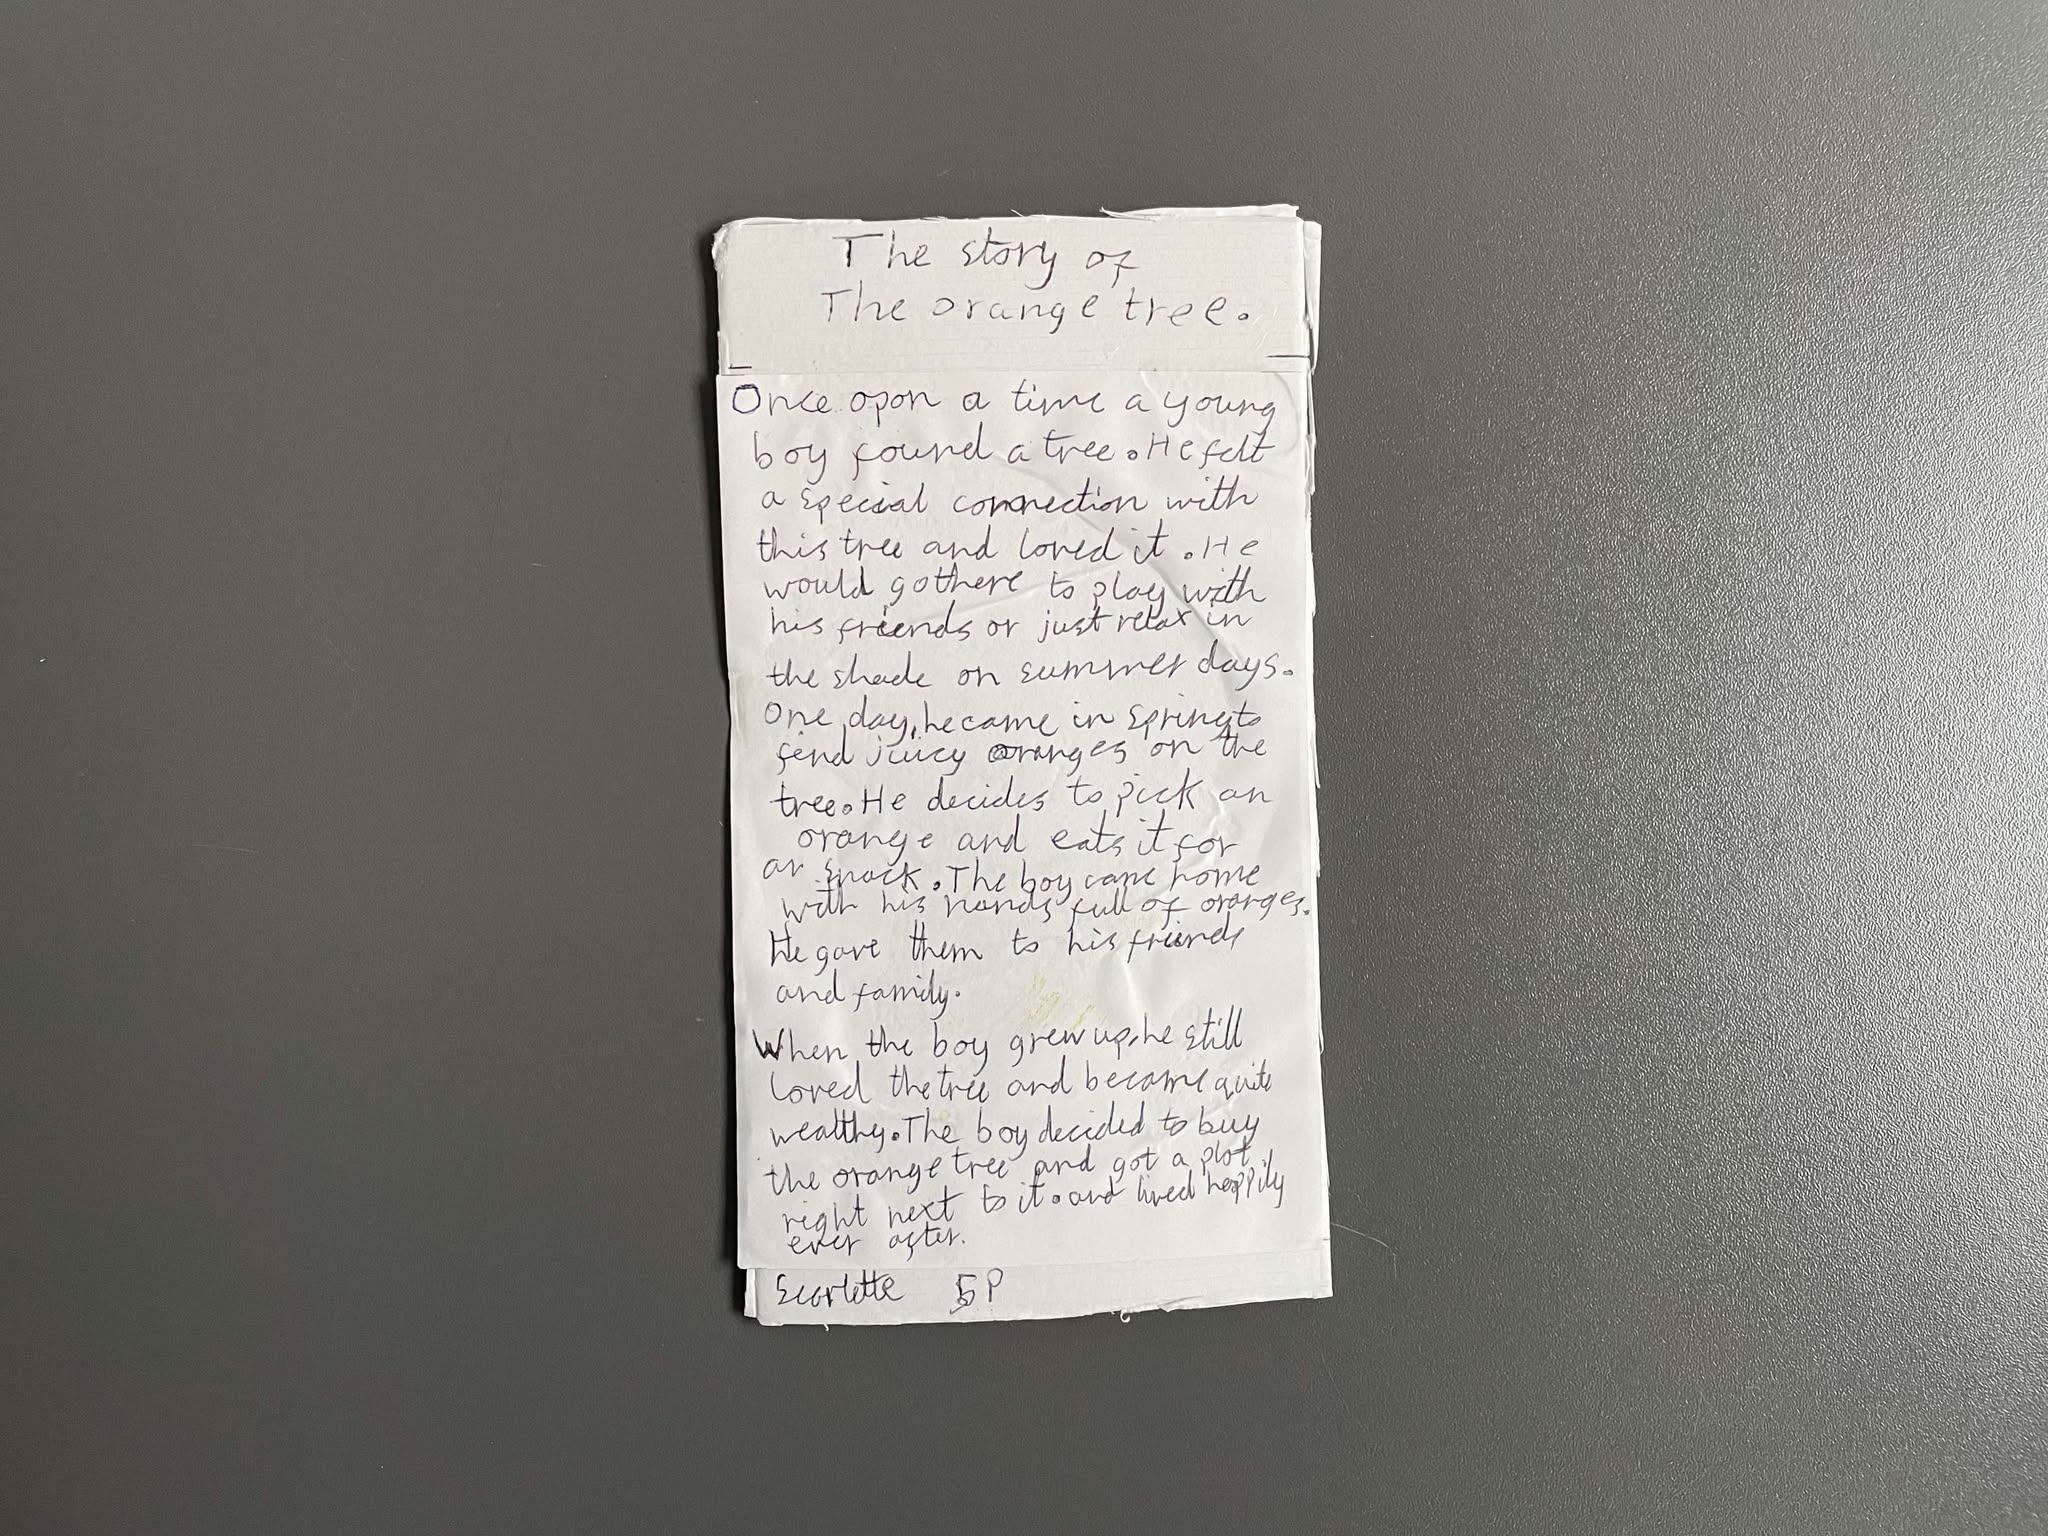 The story of
The orange tree.
Once opon a time a young
boy found a tree. He felt
a special connection with
this tree and loved it. He
would go there to play with
his friends or just relax in
the shade on summer days.
One day, he came in spring to
find juicy oranges on the
tree. He decides to pick an
orange and eats it for
an snack. The boy came home
with his hands full of oranges.
He gave them to his friends
and family.
When the boy grew up, he still
loved the tree and became quite
wealthy. The boy decided to buy
the orange tree and got a plot
right next to it. and lived happily
ever after.
Scarlette 5P